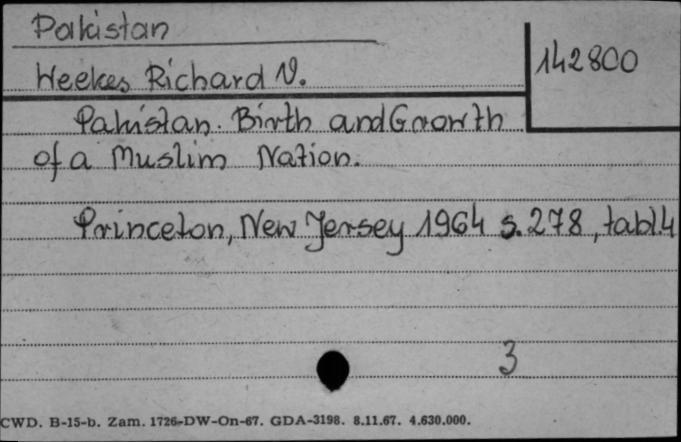 Pakistan
142800
Weekes Richard V.
Pakistan. Birth and Growth
of a Muslim Nation.
Princeton, New Jersey 1964 s. 278, tabl 4
3
CWD. B-15-b. Zam. 1726-DW-On-67. GDA-3198. 8.11.67. 4.630.000.